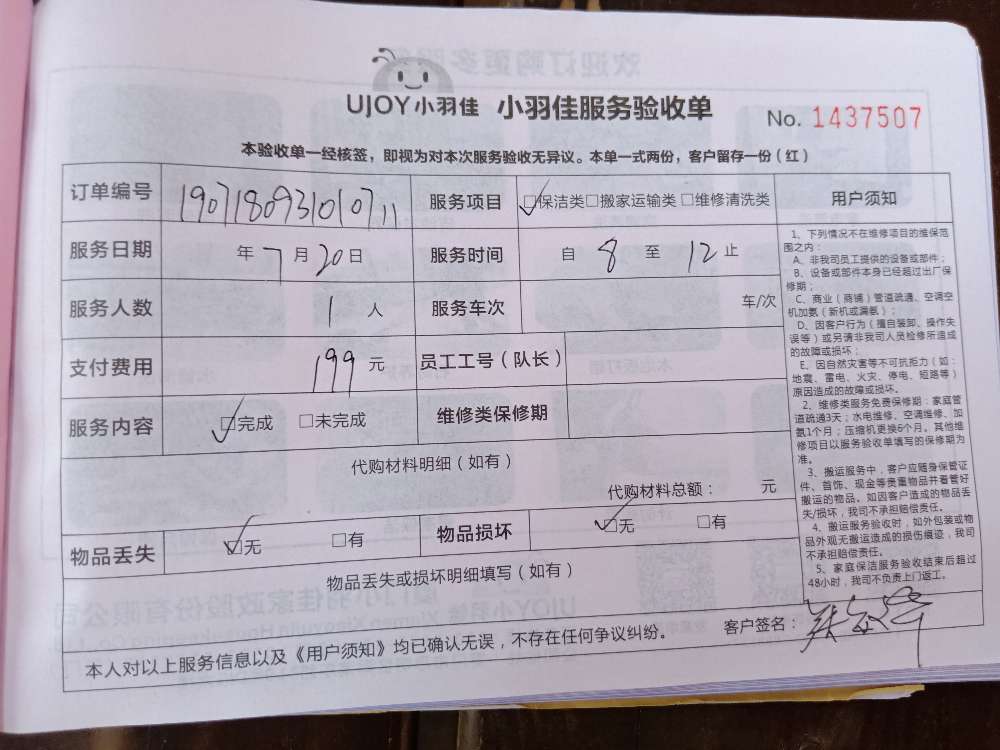 UJOY小羽佳 小羽佳服务验收单 No. 1437507
本验收单一经核签，即视为对本次服务验收无异议。本单一式两份，客户留存一份（红）
订单编号 1907180931010711 服务项目 □保洁类□搬家运输类□维修清洗类
服务日期 年7月20日 服务时间 自 8 至 12 止
服务人数 1 人 服务车次 车/次
支付费用 199 元 员工工号（队长）
服务内容 □完成 □未完成 维修类保修期
代购材料明细（如有）
代购材料总额： 元
物品丢失 □无 □有 物品损坏 □无 □有
物品丢失或损坏明细填写（如有）
本人对以上服务信息以及《用户须知》均已确认无误，不存在任何争议纠纷。 客户签名：
用户须知
1、下列情况不在维修项目的维保范
围之内：
A、非我司员工提供的设备或部件；
B、设备或部件本身已经超过出厂保
修期；
C、商业（商铺）管道疏通、空调空
机加氨（新机或漏氨）；
D、因客户行为（擅自装卸、操作失
误等）或另请非我司人员检修所造成
的故障或损坏；
E、因自然灾害等不可抗拒力（如：
地震、雷电、火灾、停电、短路等）
原因造成的故障或损坏。
2、维修类服务免费保修期：家庭管
道疏通3天；水电维修、空调维修、加
氨1个月；压缩机更换6个月。其他维
修项目以服务验收单填写的保修期为
准。
3、搬运服务中，客户应随身保管证
件、首饰、现金等贵重物品并看管好
搬运的物品。如因客户造成的物品丢
失/损坏，我司不承担赔偿责任。
4、搬运服务验收时，如外包装或物
品外观无搬运造成的损伤痕迹，我司
不承担赔偿责任。
5、家庭保洁服务验收结束后超过
48小时，我司不负责上门返工。